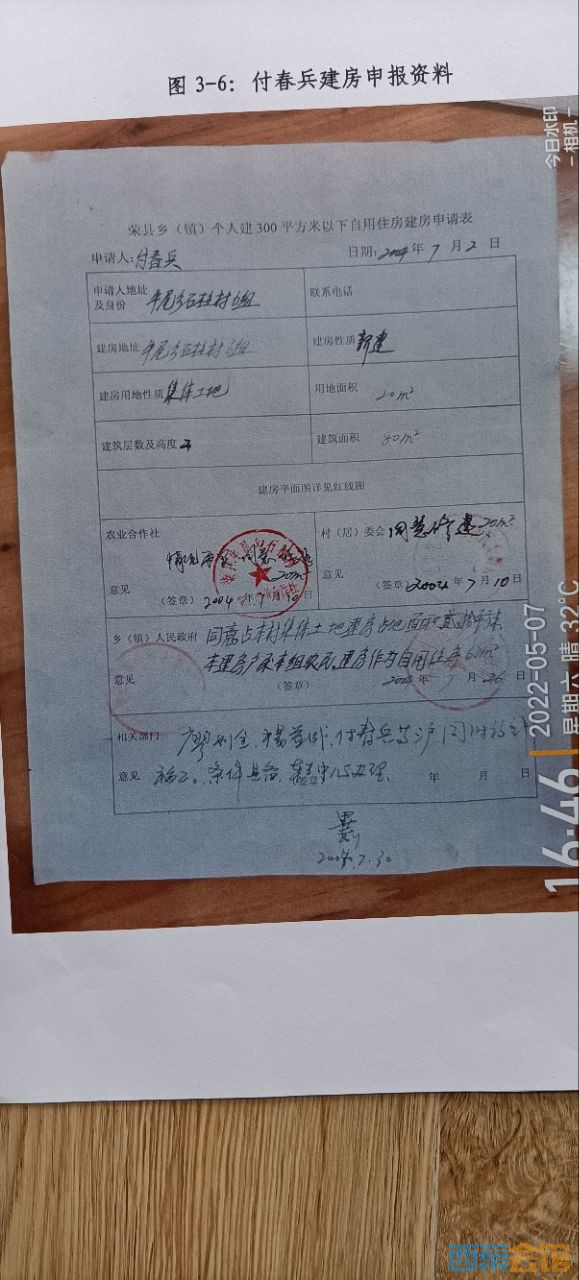 图 3-6：付春兵建房申报资料
荣县乡（镇）个人建300平方米以下自用住房建房申请表
申请人:付春兵 日期:2004年7月2日
申请人地址及身份 石柱村6组 联系电话
建房地址 石柱村6组 建房性质 新建
建房用地性质 集体土地 用地面积 20m²
建筑层数及高度 建筑面积 80m²
建房平面图详见红线图
农业合作社 村（居）委会 同意修建20m²
情况属实 同意
20m²
意见 意见
（签章）2004年7月10日 （签章）2004年7月10日
乡（镇）人民政府 同意占本村集体土地建房占地面积贰拾平米
本建房户系本组农民,建房作为自用住房
意见 （签章） 7月26日
相关部门 付春兵等户
意见 条件具备 办理 年 月 日
2004.7.30
今日水印
-相机-
16:46
2022-05-07
星期六 晴 32°C
西秦会馆